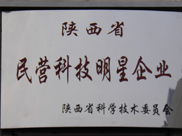 陕西省
民营科技明星企业
陕西省科学技术委员会